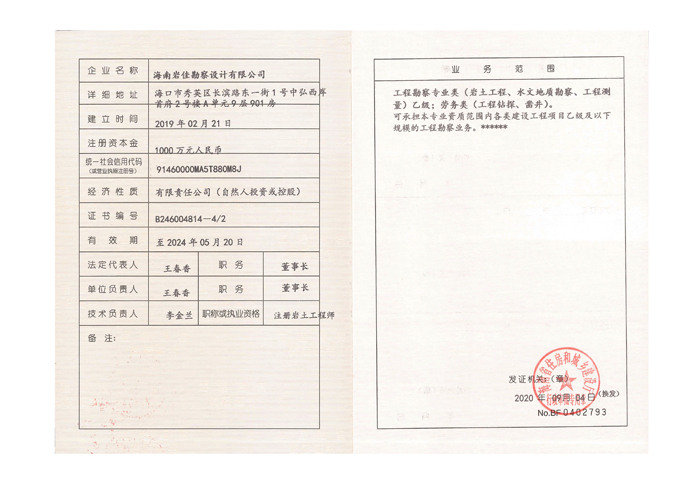 企业名称 海南岩佳勘察设计有限公司
详细地址 海口市秀英区长滨路东一街1号中弘西岸
首府2号楼A单元9层901房
建立时间 2019年02月21日
注册资本金 1000万元人民币
统一社会信用代码 91460000MA5T880M8J
(或营业执照注册号)
经济性质 有限责任公司（自然人投资或控股）
证书编号 B246004814-4/2
有效期 至2024年05月20日
法定代表人 王春香 职务 董事长
单位负责人 王春香 职务 董事长
技术负责人 李金兰 职称或执业资格 注册岩土工程师
备注:
业务范围
工程勘察专业类（岩土工程、水文地质勘察、工程测
量）乙级；劳务类（工程钻探、凿井）。
可承担本专业资质范围内各类建设工程项目乙级及以下
规模的工程勘察业务。******
海南省住房和城乡建设厅
发证机关:（章）
2020年09月04日(换发)
No.BF0402793